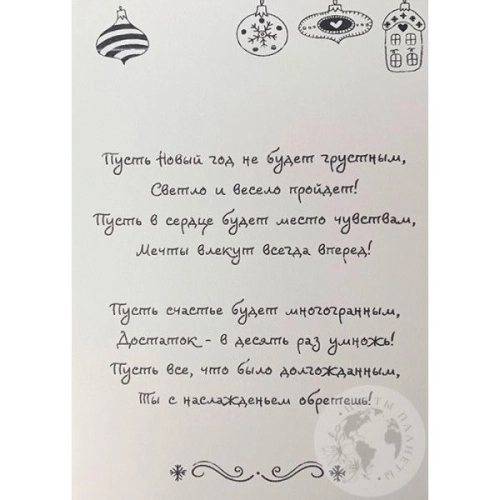 Пусть Новый год не будет грустным,
Светло и весело пройдет!
Пусть в сердце будет место чувствам,
Мечты влекут всегда вперед!
Пусть счастье будет многогранным,
Достаток - в десять раз умножь!
Пусть все, что было долгожданным,
Ты с наслажденьем обретешь!
ЦВЕТЫ ПЛАНЕТЫ